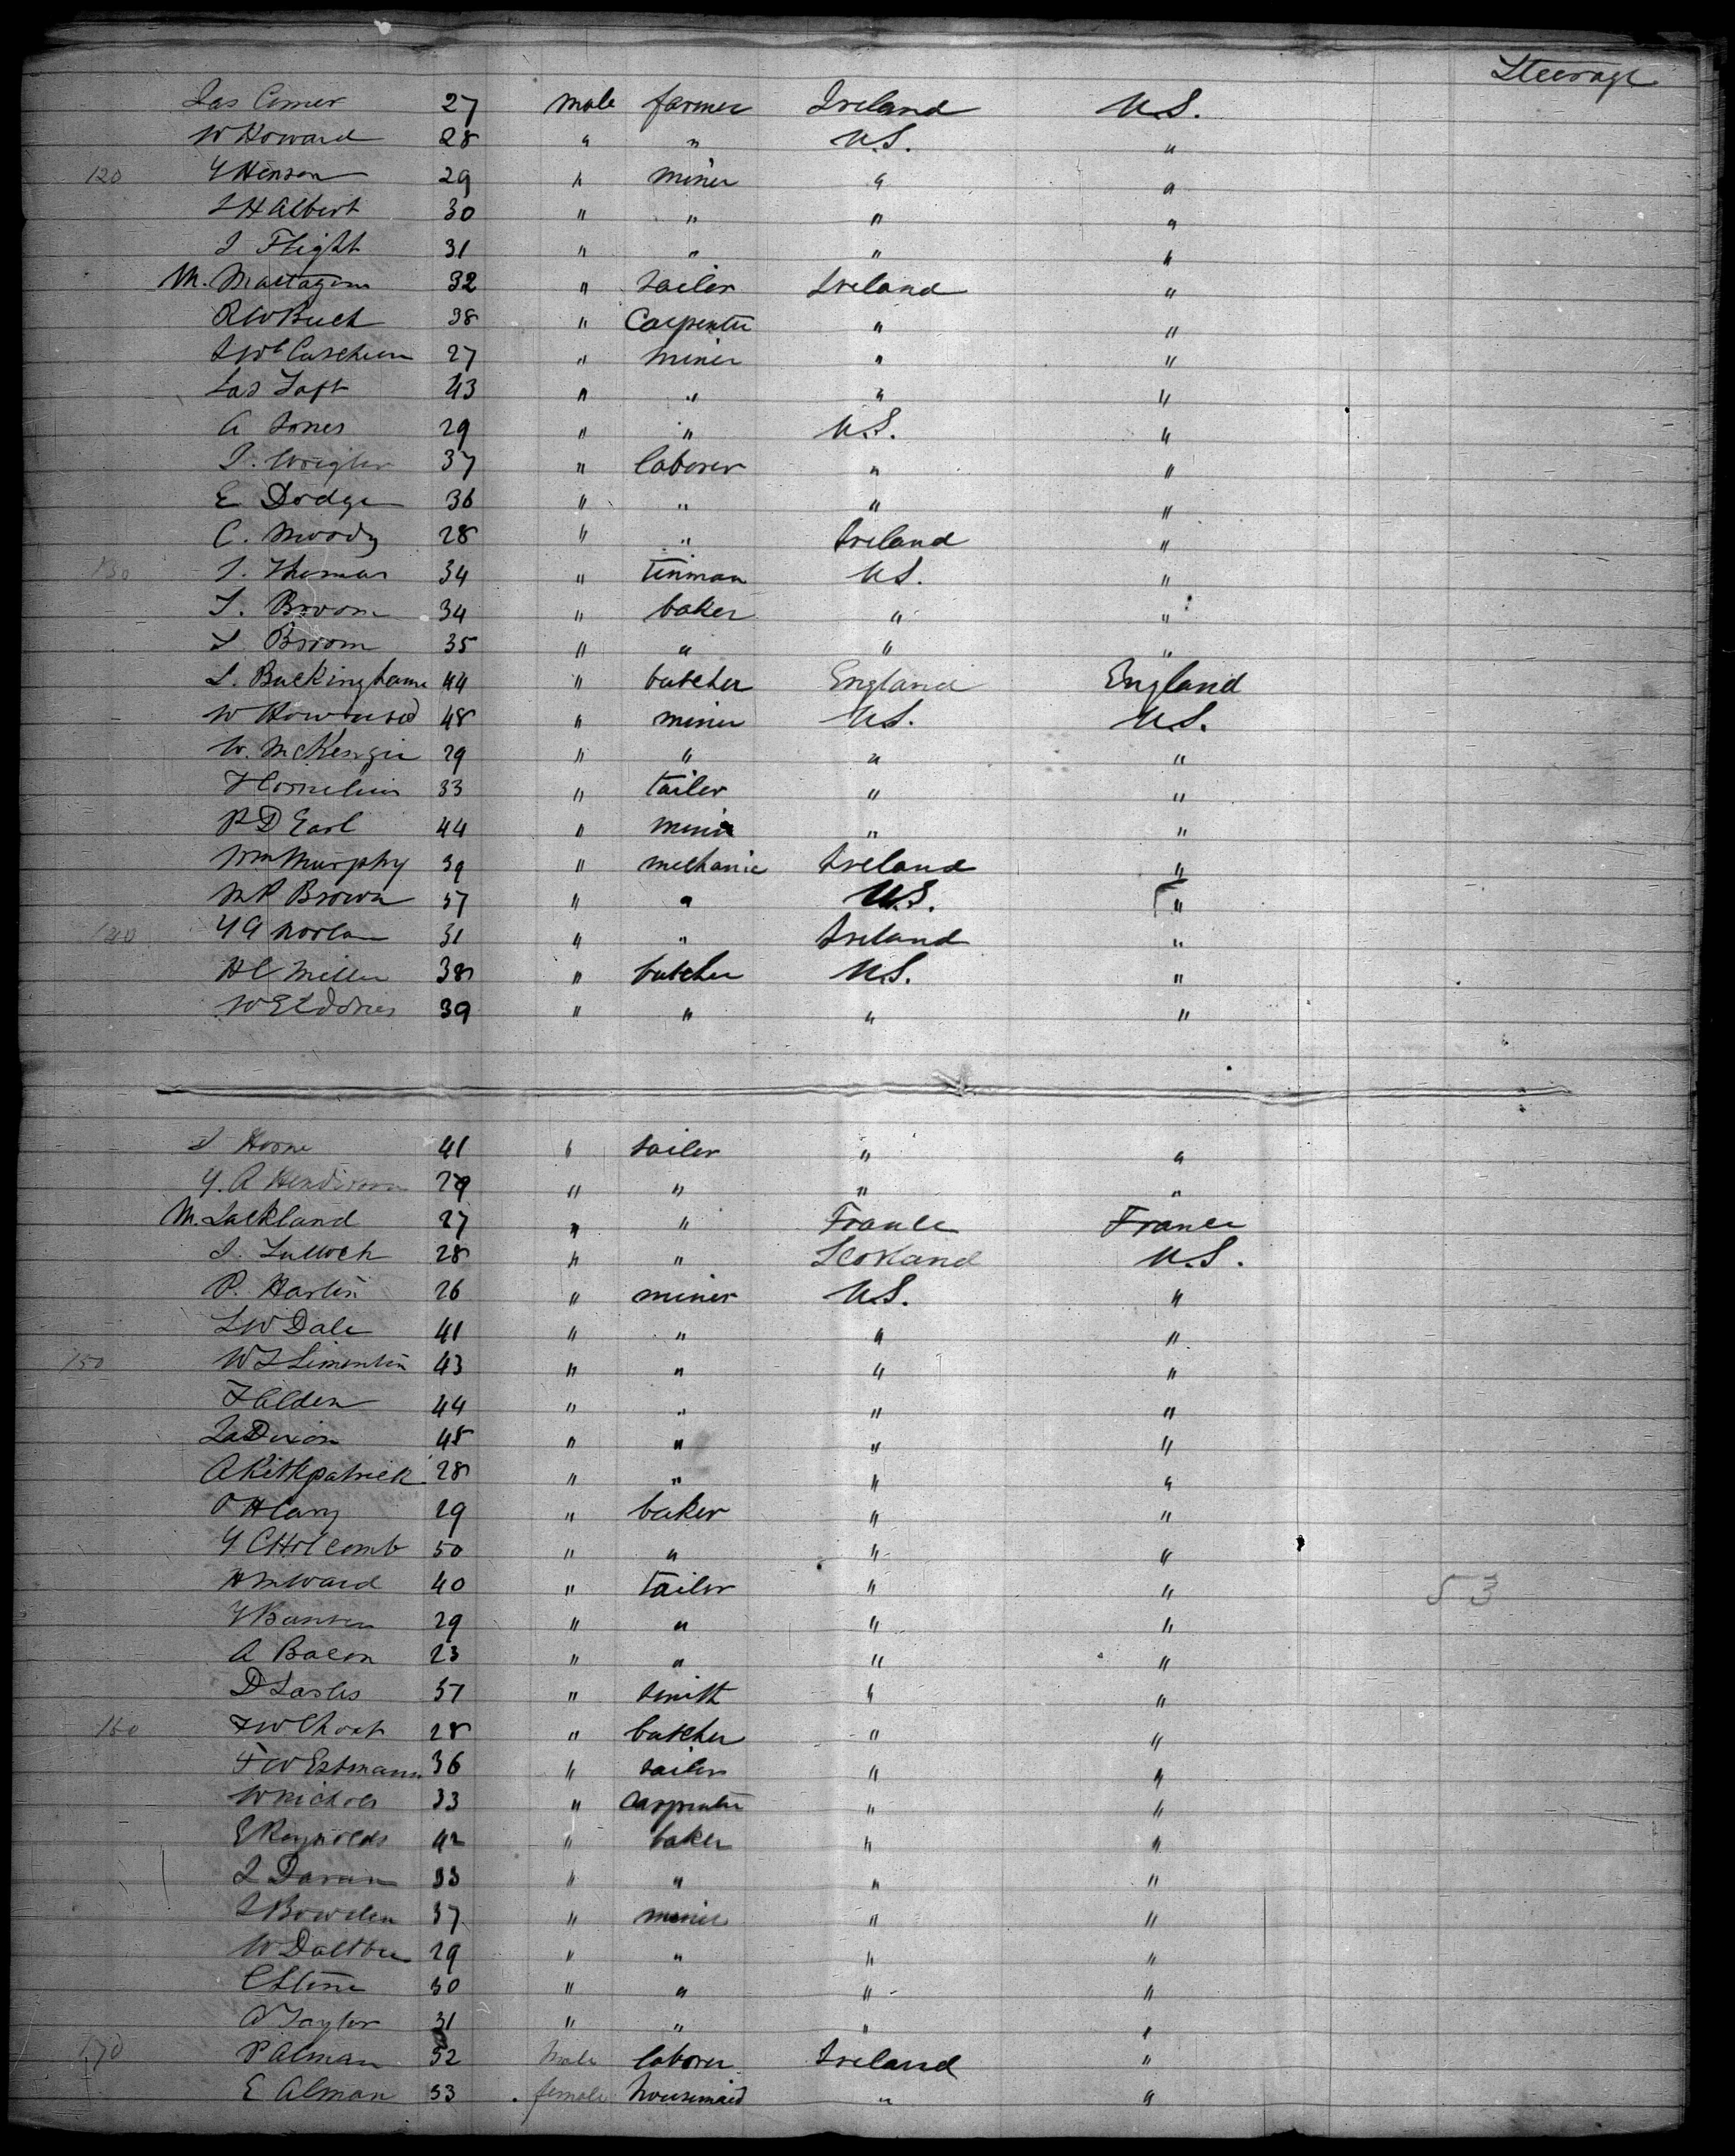 Steerage
Jas Comer 27 male farmer Ireland U.S.
W Howard 28 " " U.S. "
120 Y Henson 29 " miner " "
J H Albert 30 " " " "
J Flight 31 " " " "
M. 32 " sailor Ireland "
R W Buch 38 " Carpenter " "
27 " miner " "
Jas Taft 43 " " " "
A Jones 29 " " U.S. "
J. 37 " laborer " "
E Dodge 36 " " " "
C. Moody 28 " " Ireland "
130 J. Thomas 34 " tinman U.S. "
J. Broom 34 " baker " "
J Broom 35 " " " "
S. Buckingham 44 " butcher England England
W 48 " miner U.S. U.S.
W. McKenzie 29 " " " "
J Cornelius 33 " tailor " "
P D Earl 44 " miner " "
Wm Murphy 39 " mechanic Ireland "
M P Brown 37 " " U.S. "
140 Y A Norlan 31 " " Ireland "
H C Miller 38 " butcher U.S. "
W E 39 " " " "
J Horne 41 " sailor " "
Y. A Henderson 29 " " " "
M. Lackland 27 " " France France
J. Tulloch 28 " " Scotland U.S.
P. Harlin 26 " miner U.S. "
L W Dale 41 " " " "
150 W S Simentin 43 " " " "
J Alden 44 " " " "
Dixon 48 " " " "
A Kirkpatrick 28 " " " "
29 " baker " "
Y C Holcomb 50 " " " "
H M Ward 40 " tailor " " 53
Y 29 " " " "
A Bacon 23 " " " "
D 37 " smith " "
160 J W Choat 28 " butcher " "
F W Estmann 36 " sailor " "
W Nichols 33 " carpenter " "
E Reynolds 42 " baker " "
J 33 " " " "
J Bowden 37 " miner " "
W 29 " " " "
C Stone 30 " " " "
A Taylor 31 " " " "
170 P Alman 32 male laborer Ireland "
E Alman 33 female housemaid " "